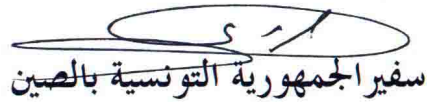 سفير الجمهورية التونسية بالصين